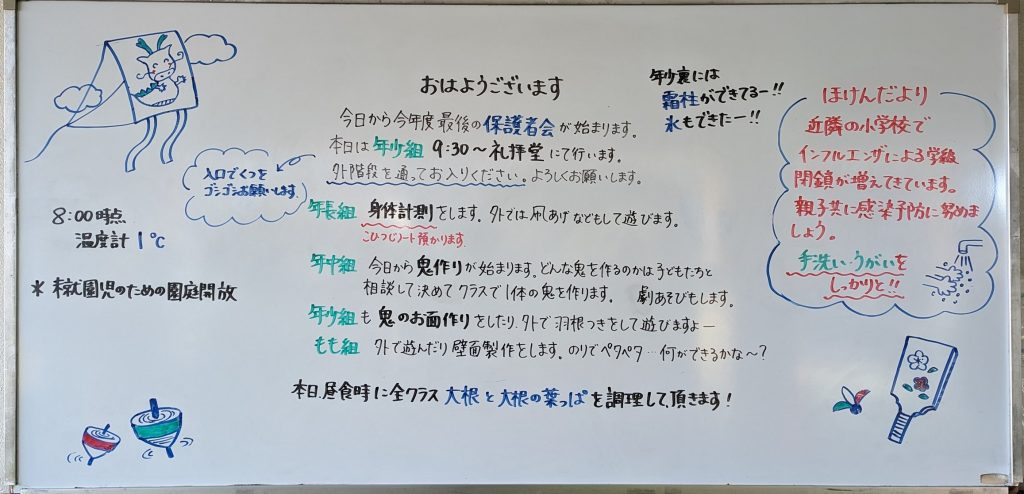 おはようございます
今日から今年度最後の保護者会が始まります。
本日は年少組 9:30〜礼拝堂にて行います。
外階段を通ってお入りください。よろしくお願いします。
入口でくつを
ゴシゴシお願いします。
年少裏には
霜柱ができてるー!!
氷もできたー!!
ほけんだより
近隣の小学校で
インフルエンザによる学級
閉鎖が増えてきています。
親子共に感染予防に努めま
しょう。
手洗い・うがいを
しっかりと!!
8:00時点
温度計 1℃
* 未就園児のための園庭開放
年長組 身体計測をします。外では凧あげなどもして遊びます。
こひつじノート預かります。
年中組 今日から鬼作りが始まります。どんな鬼を作るのかは子どもたちと
相談して決めてクラスで1体の鬼を作ります。 劇あそびもします。
年少組も鬼のお面作りをしたり、外で羽根つきをして遊びますよー
もも組 外で遊んだり壁面製作をします。のりでペタペタ…何ができるかな〜?
本日、昼食時に全クラス大根と大根の葉っぱを調理して頂きます!